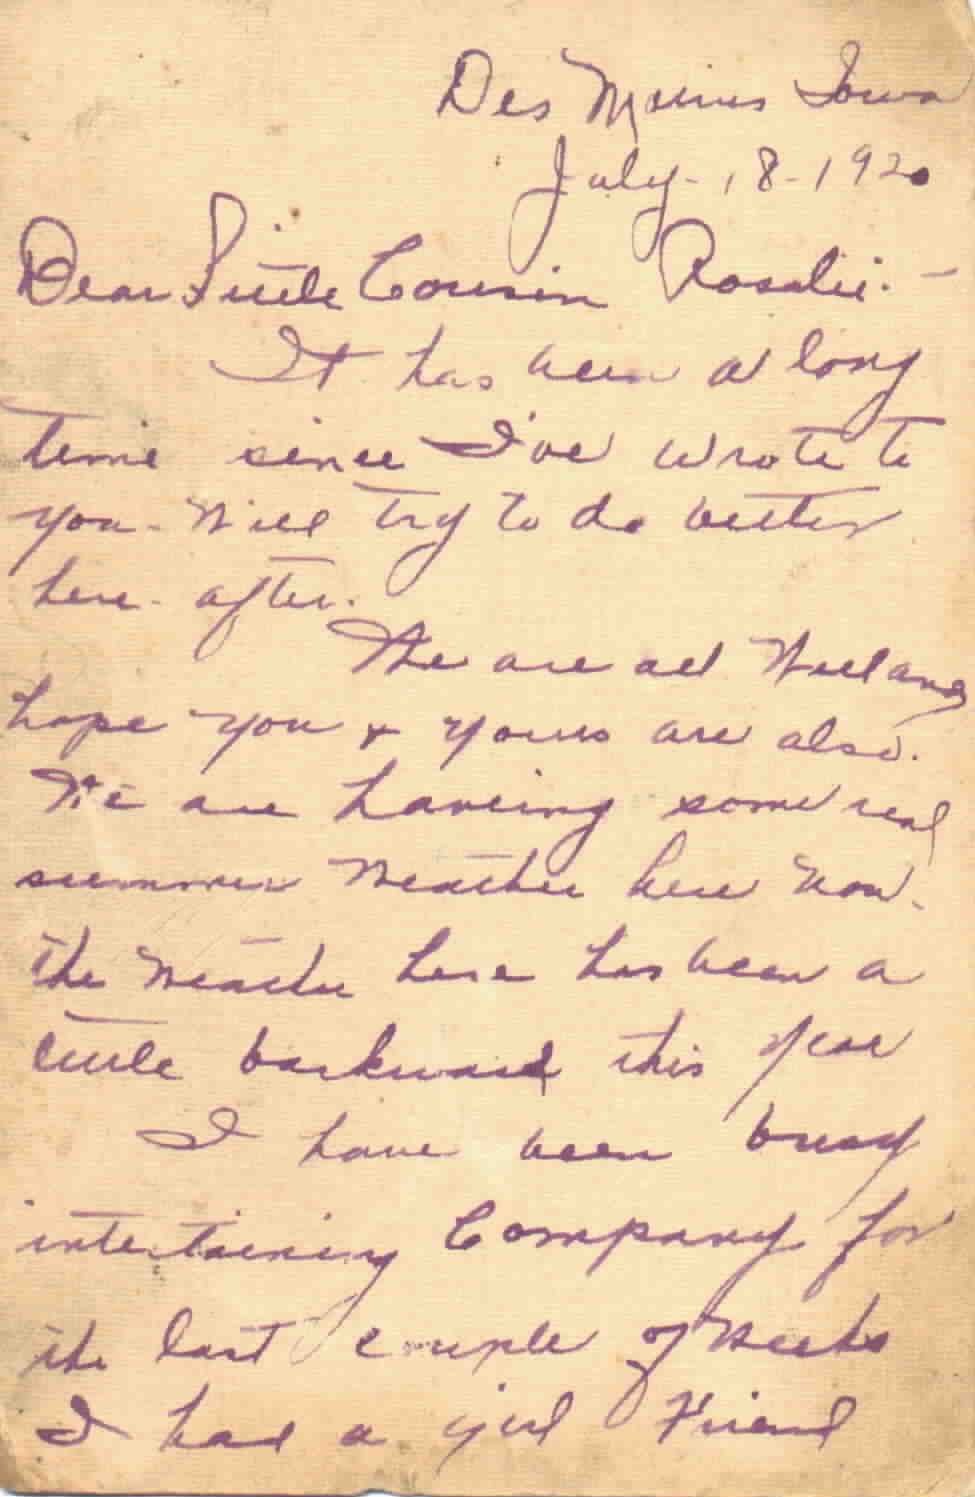 Des Moines Iowa
July - 18 - 1920
Dear Little Cousin Rosalie. -
It has been a long
time since I've wrote to
you - Will try to do better
here - after.
We are all Well and
hope you & yours are also.
We are haveing some real
summer Weather here Now.
the Weather here has been a
little backward this year
I have been busy
intertaining Company for
the last couple of Weeks
I had a girl Friend